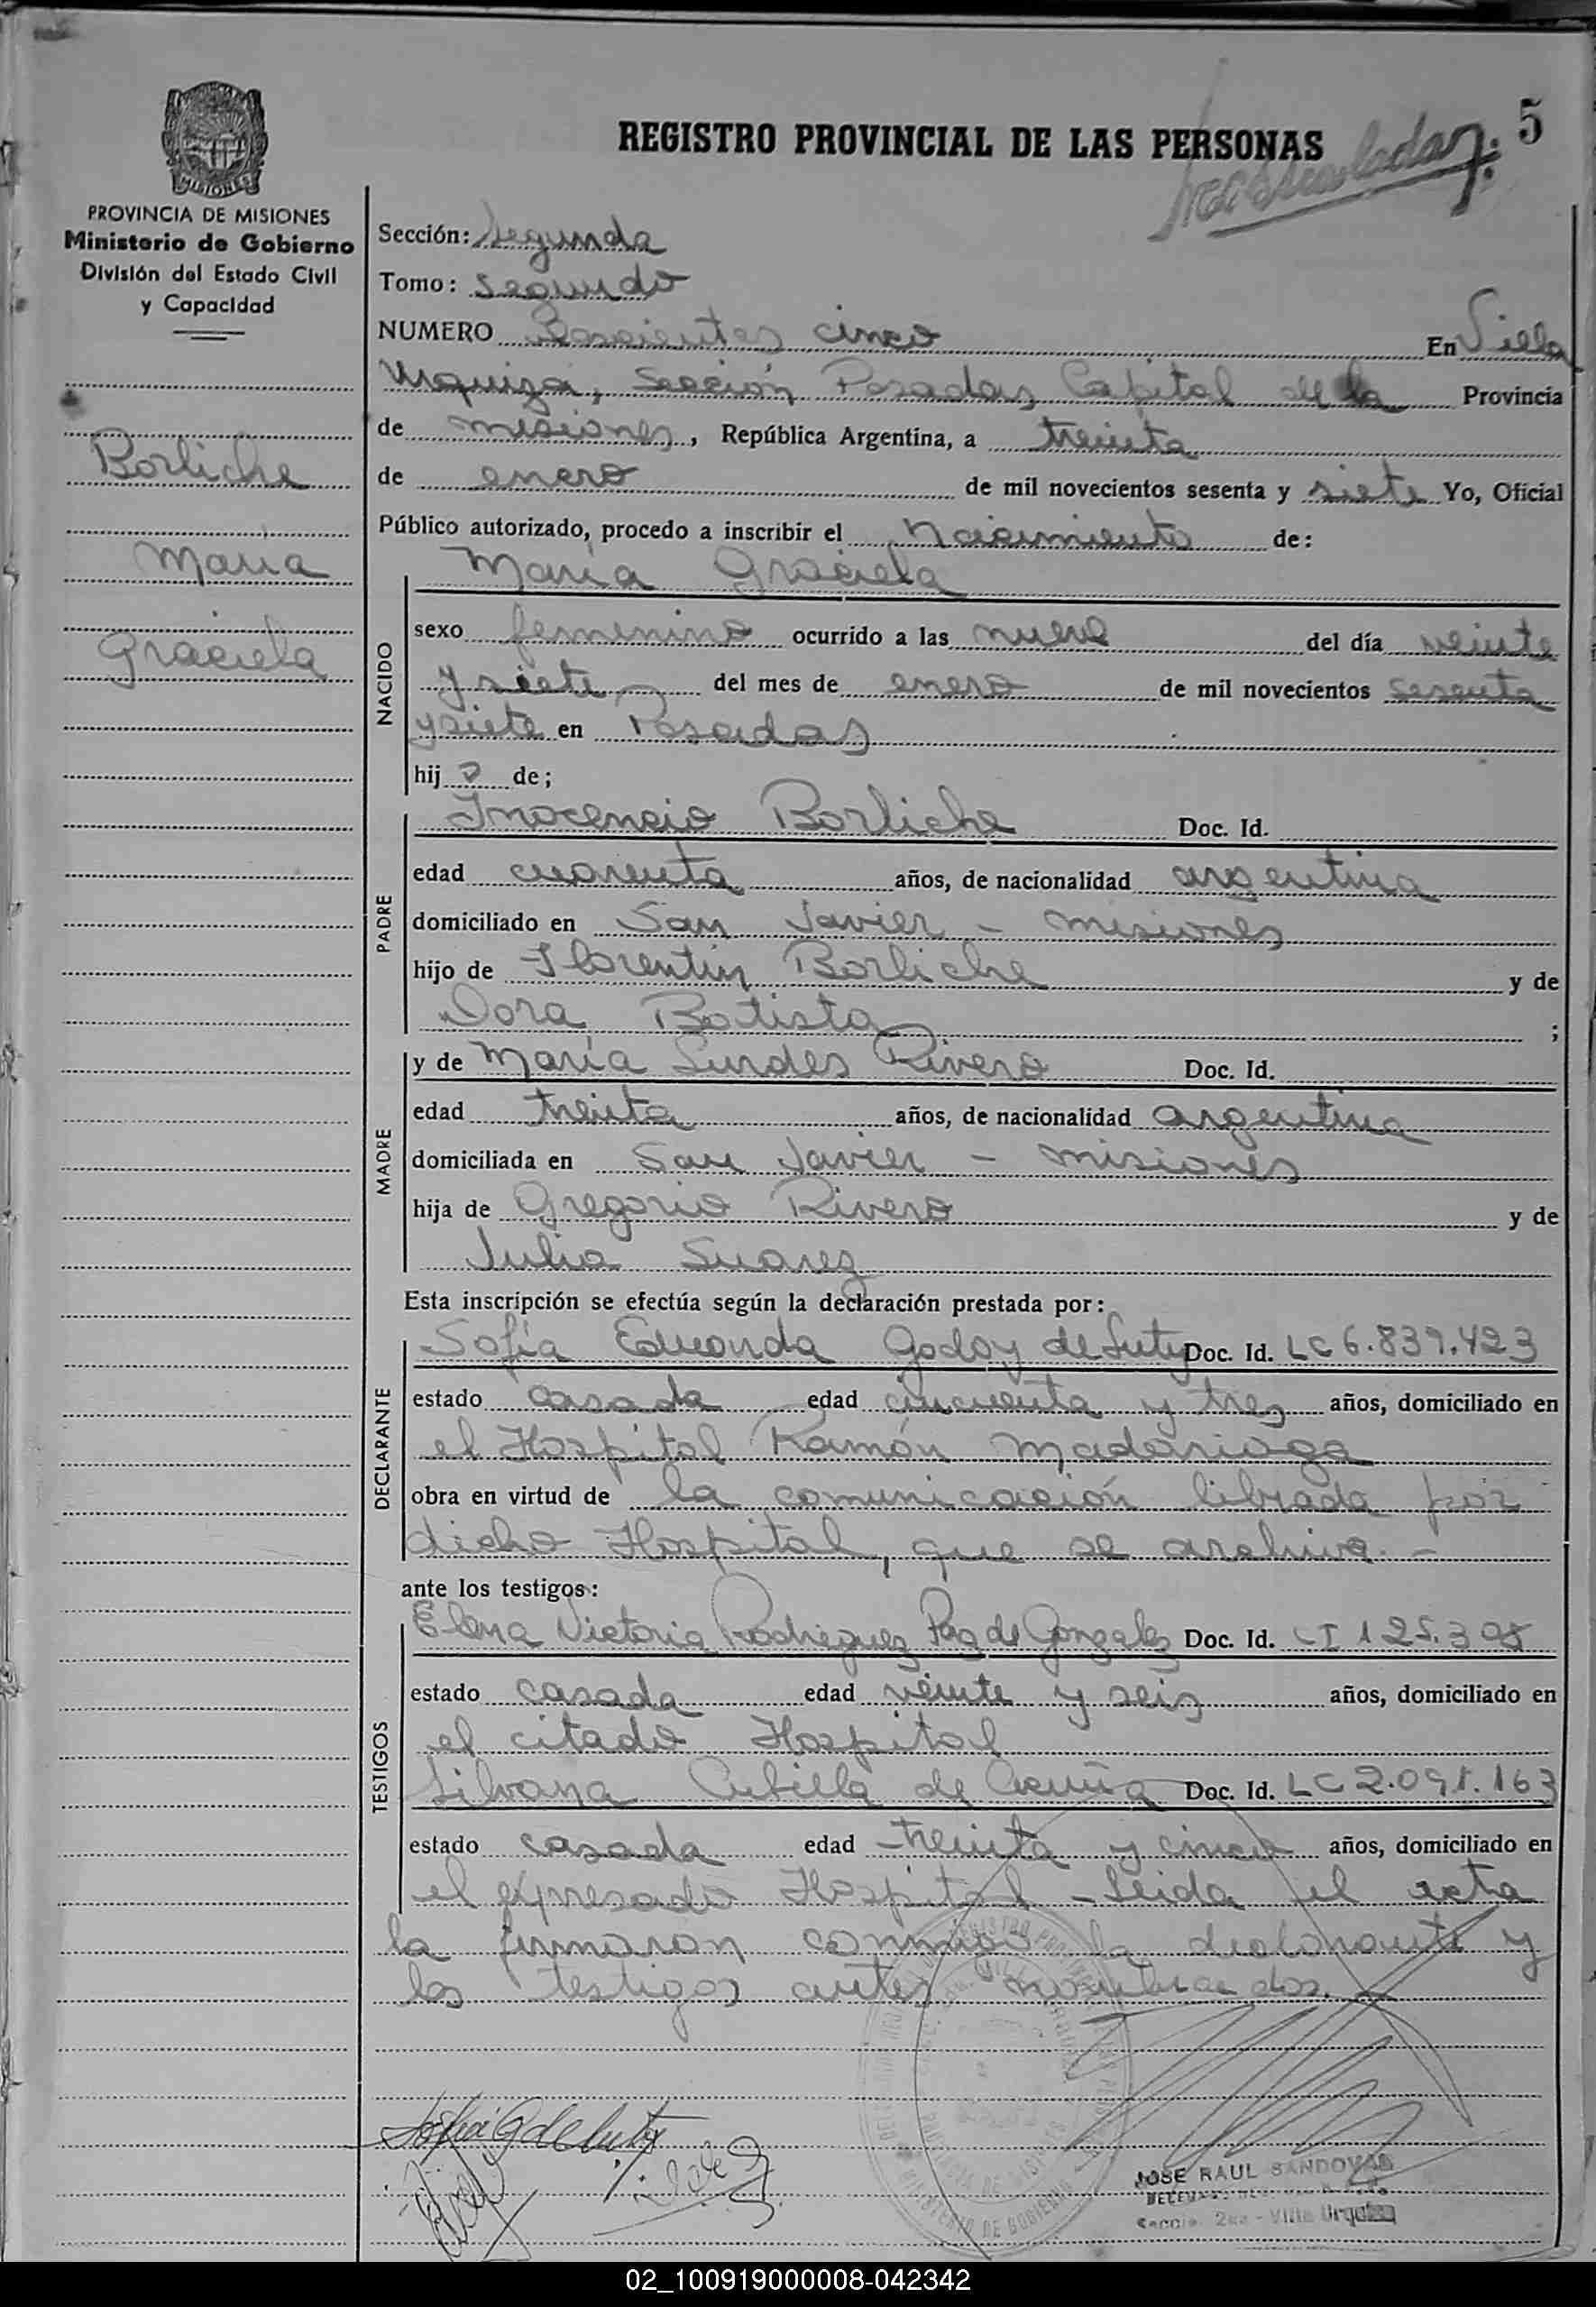 REGISTRO PROVINCIAL DE LAS PERSONAS
5
MISIONES
PROVINCIA DE MISIONES
Ministerio de Gobierno
División del Estado Civil
y Capacidad
Borliche
Maria
Graciela
Sección: Segunda
Tomo: Segundo
NUMERO Doscientos cinco En Villa
Urquiza, Sección Posadas, Capital de la Provincia
de misiones, República Argentina, a treinta
de enero de mil novecientos sesenta y siete Yo, Oficial
Público autorizado, procedo a inscribir el Nacimiento de:
NACIDO
María Graciela
sexo femenino ocurrido a las nueve del día veinte
y siete del mes de enero de mil novecientos sesenta
y siete en Posadas
hij a de;
PADRE
Inocencio Borliche Doc. Id.
edad cuarenta años, de nacionalidad argentina
domiciliado en San Javier - misiones
hijo de Florentín Borliche y de
Dora Batista ;
MADRE
y de María Lurdes Rivero Doc. Id.
edad treinta años, de nacionalidad argentina
domiciliada en San Javier - misiones
hija de Gregorio Rivero y de
Julia Suarez
Esta inscripción se efectúa según la declaración prestada por:
DECLARANTE
Sofía Eduarda Godoy de Luty Doc. Id. LC 6.839.423
estado casada edad cincuenta y tres años, domiciliado en
el Hospital Ramón Madariaga
obra en virtud de la comunicación librada por
dicho Hospital, que se archiva. -
ante los testigos:
TESTIGOS
Elena Victoria Rodriguez Paz de Gonzalez Doc. Id. CI 125.305
estado casada edad veinte y seis años, domiciliado en
el citado Hospital
Silvana Cubilla de Acuña Doc. Id. LC 2.091.163
estado casada edad treinta y cinco años, domiciliado en
el expresado Hospital - Leida el acta
la firmaron conmigo la declarante y
los testigos antes nombrados.
Sofia G de Luty
JOSE RAUL SANDOVAL
Villa Urquiza
02_100919000008-042342